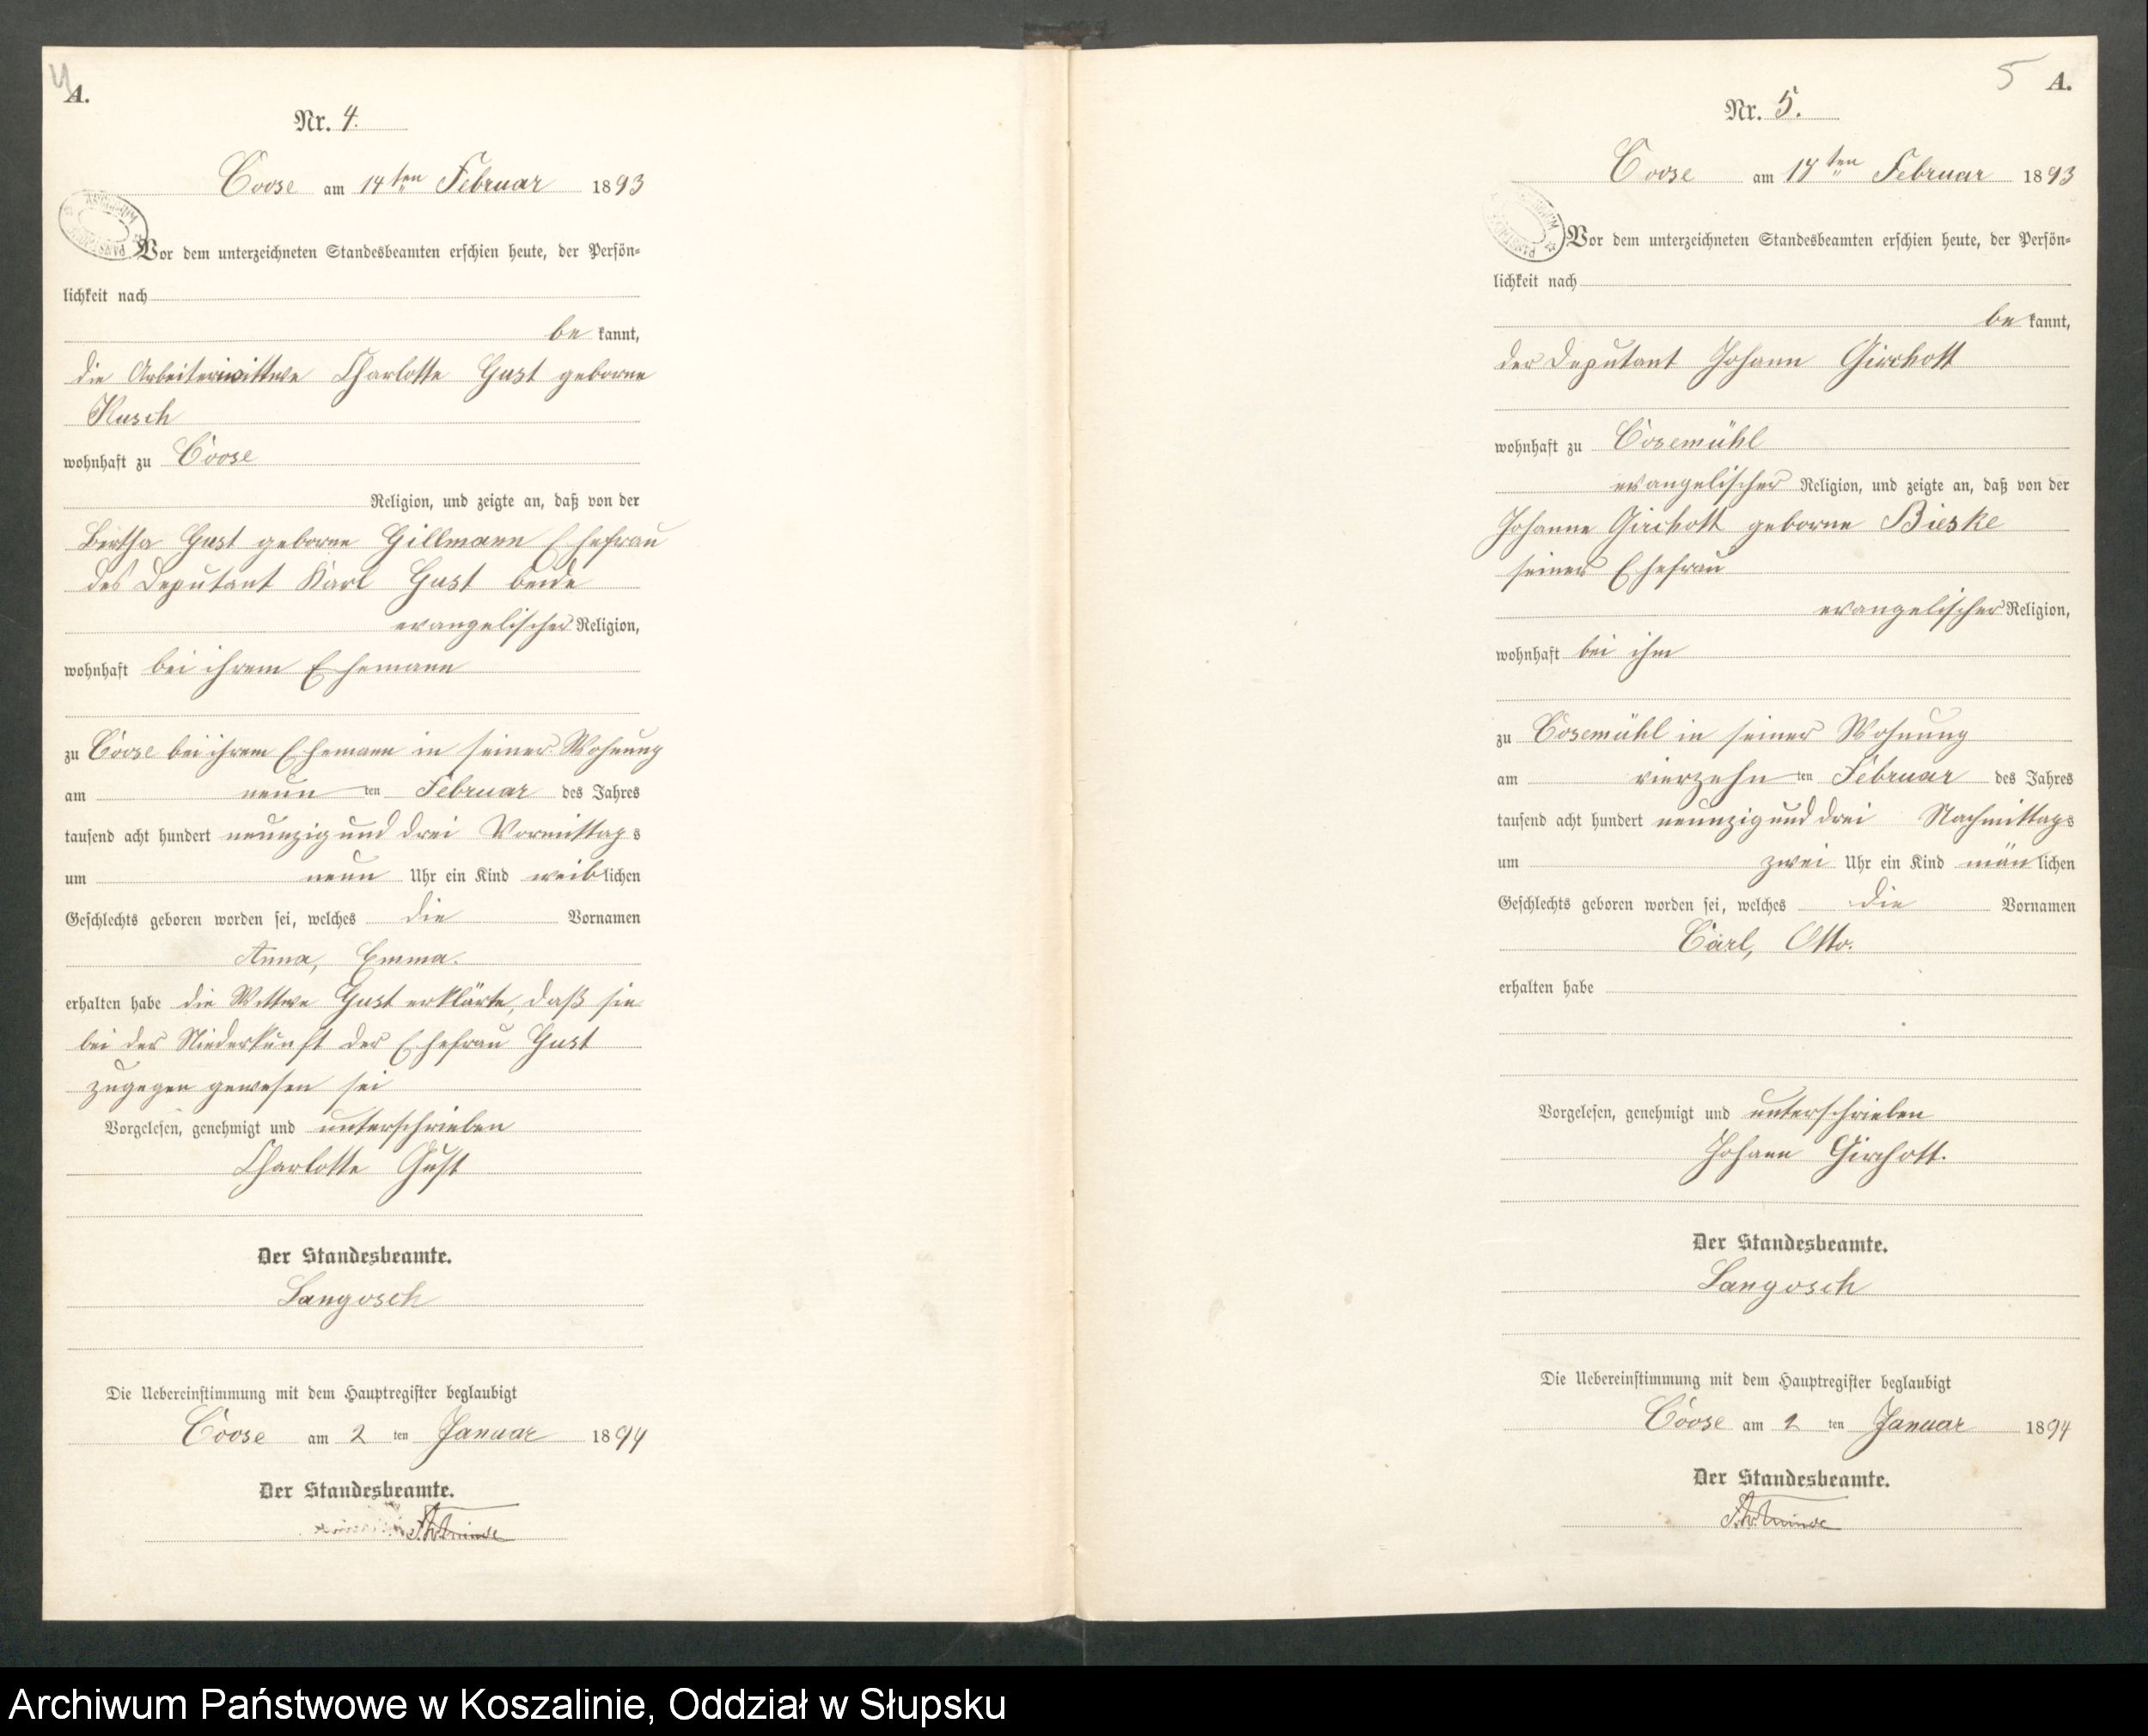 4
A.
Nr. 4.
Coose am 14ten Februar 1893
Vor dem unterzeichneten Standesbeamten erschien heute, der Persön=
lichkeit nach
be kannt,
die Arbeiterwittwe Charlotte Gust geborne
Kusch
wohnhaft zu Coose
Religion, und zeigte an, daß von der
Bertha Gust geborne Gillmann Ehefrau
des Deputant Karl Gust beide
evangelischer Religion,
wohnhaft bei ihrem Ehemann
zu Coose bei ihrem Ehemann in seiner Wohnung
am neun ten Februar des Jahres
tausend acht hundert neunzig und drei Vormittags
um neun Uhr ein Kind weiblichen
Geschlechts geboren worden sei, welches die Vornamen
Anna, Emma.
erhalten habe die Wittwe Gust erklärte, daß sie
bei der Niederkunft der Ehefrau Gust
zugegen gewesen sei
Vorgelesen, genehmigt und unterschrieben
Charlotte Gust
Der Standesbeamte.
Langosch
Die Uebereinstimmung mit dem Hauptregister beglaubigt
Coose am 2 ten Januar 1894
Der Standesbeamte.
5 A.
Nr. 5.
Coose am 17ten Februar 1893
Vor dem unterzeichneten Standesbeamten erschien heute, der Persön=
lichkeit nach
be kannt,
der Deputant Johann Girchott
wohnhaft zu Cosemühl
evangelischer Religion, und zeigte an, daß von der
Johanne Girchott geborne Bieske
seiner Ehefrau
evangelischer Religion,
wohnhaft bei ihm
zu Cosemühl in seiner Wohnung
am vierzehn ten Februar des Jahres
tausend acht hundert neunzig und drei Nachmittags
um zwei Uhr ein Kind män lichen
Geschlechts geboren worden sei, welches die Vornamen
Carl, Otto.
erhalten habe
Vorgelesen, genehmigt und unterschrieben
Johann Girchott.
Der Standesbeamte.
Langosch
Die Uebereinstimmung mit dem Hauptregister beglaubigt
Coose am 2 ten Januar 1894
Der Standesbeamte.
Archiwum Państwowe w Koszalinie, Oddział w Słupsku